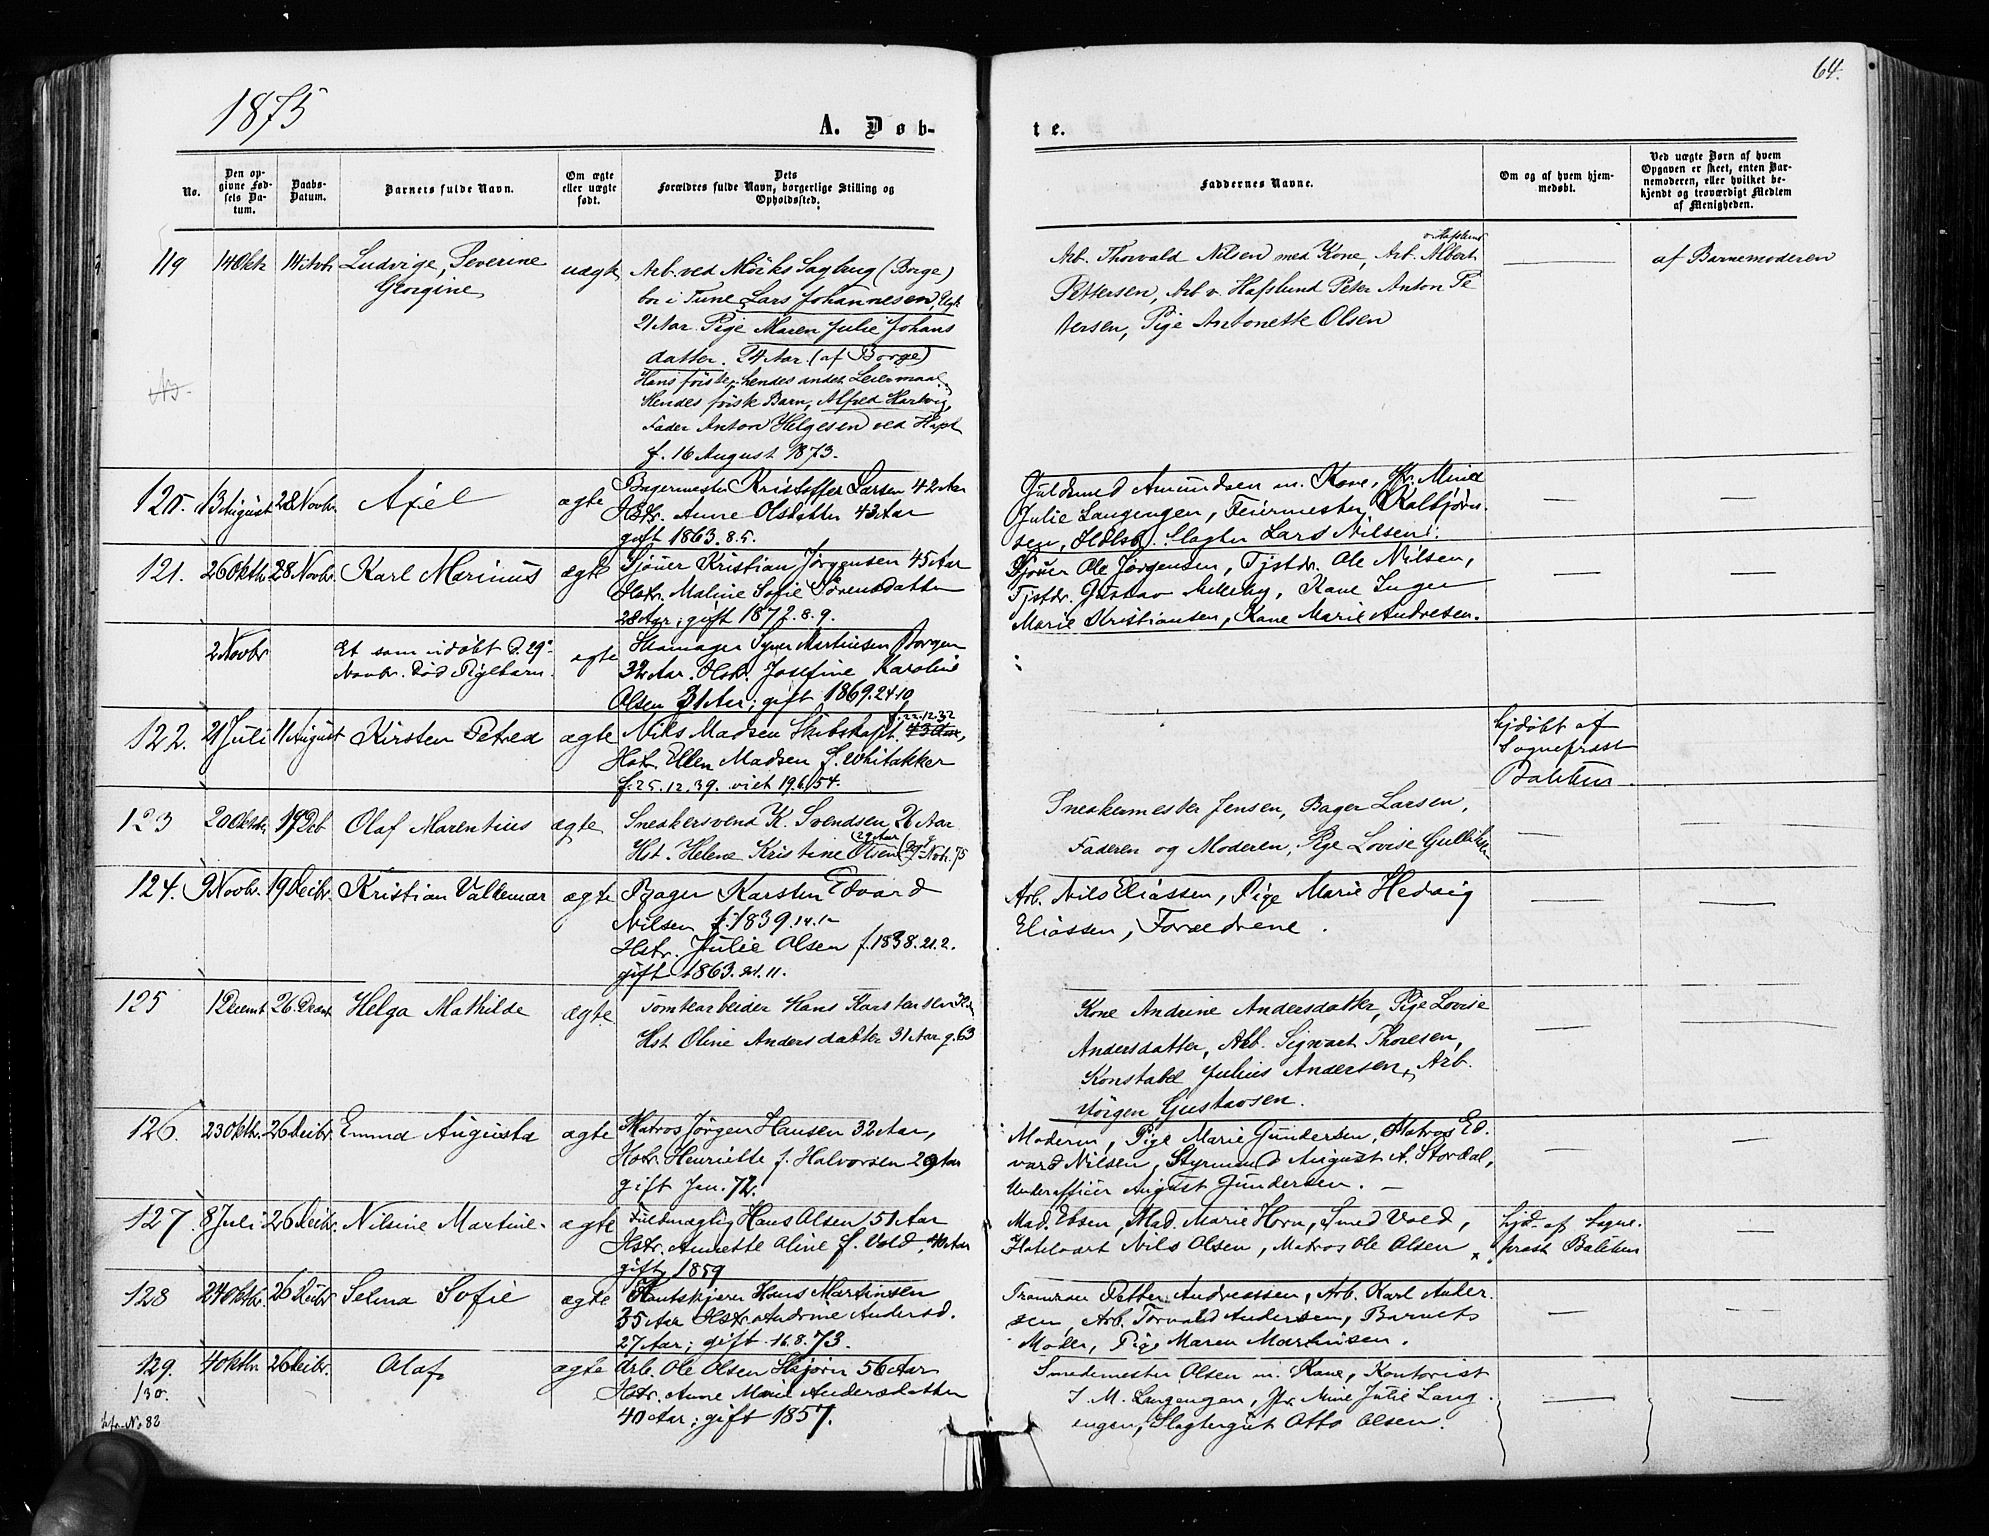 64.
1875
A. Døb-
te.
No.
Den op-
givne Fød-
sels Da-
tum.
Daabs-
Datum.
Barnets fulde Navn.
Om ægte
eller uægte
født.
Dets
Forældres fulde Navn, borgerlige Stilling og
Opholdssted.
Faddernes Navne.
Om og af hvem hjem-
medøbt.
Ved uægte Børn af hvem
Opgaven er skeet, enten Bar-
nemoderen, eller hvilket be-
kjendt og troværdigt Medlem
af Menigheden.
119 14 Oktr 14 Nvbr Ludvige, Severine
Georgine
uægte
Arb. ved Mörks Sagbrug (Borge)
bor i Tune Lars Johannesen, Ugk.
21 Aar. Pige Maren Julie Johans
datter. 24 Aar. (af Borge)
Hans förste, hendes andet Leiermaal.
Hendes förste Barn, Alfred Hartvig,
Fader Anton Helgesen ved
f. 16 August 1873.
v. Hafslund
Arb. Thorvald Nilsen med Kone, Arb. Albert
Pettersen, Arb. v. Hafslund Peter Anton Pe
tersen, Pige Antonette Olsen
af Barnemoderen
120. 13 August 28 Novbr. Axel ægte
Bagermester Kristoffer Larsen 42 Aar
Hstr. Anne Olsdatter 43 Aar
gift 1863. 8. 5.
Guldsmed Amundsen m. Kone, Jfr. Mine
Julie Langengen, Feiermester Kalbjørn-
sen, Slagter Lars Nilsen.
121. 26 Oktbr. 28 Novbr. Karl Marinus ægte
Sjøuer Kristian Jørgensen 45 Aar
Hstr. Maline Sofie Sørensdatter
28 Aar; gift 1872. 8. 9.
Sjøuer Ole Jørgensen, Tjstdr. Ole Nilsen,
Tjstdr. Gustav Melleby, Kone Inger
Marie Kristiansen, Kone Marie Andresen.
2 Novbr
Et som udøbt d. 29.
Novbr. død Pigebarn.
ægte
Skomager Syver Martinsen Borgen
32 Aar. Hstr. Josefine Karoline
Olsen 31 Aar; gift 1869. 24. 10
122. 21 Juli 11 August Kirsten Petrea ægte
f. 22.12.32
Nils Madsen Skibskapt. 43 Aar,
Hstr. Ellen Madsen f. Whitakker
f. 25. 12. 39. viet 19.6.54.
hjdøbt af
Sogneprest
Balchen.
123 20 Oktbr. 19 Deb Olaf Marentius ægte
Snedkersvend K. Svendsen 26 Aar
29 Aar
Hst. Helene Kristine Olsen Novb. 75
Snedkermester Jensen, Bager Larsen,
Faderen og Moderen, Pige Lovise
124. 9 Novbr. 19 Decbr. Kristian Valdemar ægte
Bager Karsten Edvard
Nilsen f. 1839. 14. 12
Hstr. Julie Olsen f. 1838. 21. 2.
gift 1863. 21. 11.
Arb. Nils Eliassen, Pige Marie Hedvig
Eliassen, Forældrene.
125 1 Decemt 26. Decmt Helga Mathilde ægte
Tomtearbeider Hans Karstensen
Hst Oline Andersdatter 31 Aar g. 63
Kone Andrine Andersdatter, Pige Lovise
Andersdatter, Arb. Sigvart Thoresen,
Konstabel Julius Andersen, Arb.
Jörgen Gustavsen.
126. 23 Oktbr. 26 Decbr. Emma Augusta ægte
Matros Jørgen Hansen 32 Aar,
Hstr. Henriette f. Halvorsen 29 Aar
gift Jan. 72.
Moderen, Pige Marie Gundersen, Matros Ed-
vard Nilsen, Styrmand August A. Stordal,
Underofficier August Gundersen.
127. 8 Juli 26 Decbr. Nilsine Martine. ægte
Fuldmægtig Hans Olsen 51 Aar
Hstr. Annette Aline f. Vold, 40 Aar
gift 1859
Mad. Ebsen, Mad. Marie Horn, Smed Vold,
Hotelvært Nils Olsen, Matros Ole Olsen
hjd. af Sogne-
prest Balchen
128 24 Oktbr. 26 Decbr Selma Sofie ægte
Hans Martinsen
35 Aar Hstr. Andrine Andersd.
27 Aar; gift 16. 8. 73.
Petter Andreassen, Arb. Karl Ander
sen, Arb. Torvald Andersen, Barnets
Moder, Pige Maren Martinsen.
129. 4 Oktbr 26 Decbr. Olaf ægte
Arb. Ole Olsen Skjørn 56 Aar
Hstr. Anne Marie Andersdatter
40 Aar; gift 1857.
Smedemester Olsen m. Kone, Kontorist
J. M. Langengen, Jfr. Mine Julie Lang-
engen, Slagtergut Otto Olsen.
130.
No 82